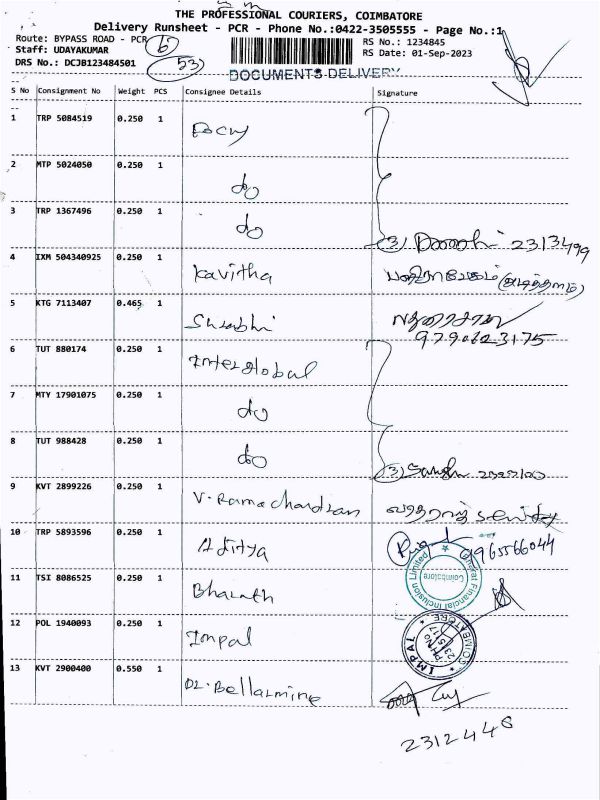 THE PROFESSIONAL COURIERS, COIMBATORE
Delivery Runsheet - PCR - Phone No.:0422-3505555 - Page No.:1
Route: BYPASS ROAD - PCR 6
RS No.: 1234845
Staff: UDAYAKUMAR
RS Date: 01-Sep-2023
DRS No.: DCJB123484501 53
DOCUMENTS DELIVERY
S No Consignment No Weight PCS Consignee Details Signature
1 TRP 5084519 0.250 1
2 MTP 5024050 0.250 1 do
3 TRP 1367496 0.250 1 do
(3) 2313499
4 IXM 504340925 0.250 1 Kavitha
5 KTG 7113407 0.465 1
6 TUT 880174 0.250 1 Interglobal
7 MTY 17901075 0.250 1 do
8 TUT 988428 0.250 1 do
(3)
9 KVT 2899226 0.250 1 V. Ramachandran
10 TRP 5893596 0.250 1 Aditya 9965566044
11 TSI 8086525 0.250 1 Bharath
Bharat Financial Inclusion Limited
Coimbatore
12 POL 1940093 0.250 1 Impal
IMPAL COIMBATORE
13 KVT 2900400 0.550 1 Dr. Bellarmine
2312448